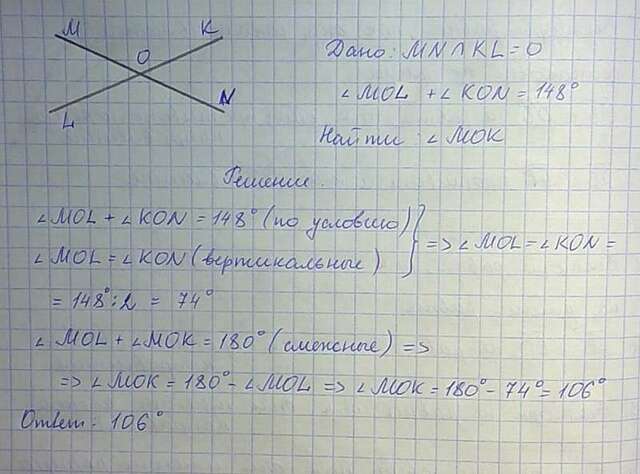 M K
O
L N
Дано: MN∩KL=O
∠MOL + ∠KON = 148°
Найти: ∠MOK
Решение.
∠MOL + ∠KON = 148° (по условию)
∠MOL = ∠KON (вертикальные) } => ∠MOL = ∠KON =
= 148° : 2 = 74°
∠MOL + ∠MOK = 180° (смежные) =>
=> ∠MOK = 180° - ∠MOL => ∠MOK = 180° - 74° = 106°
Ответ: 106°